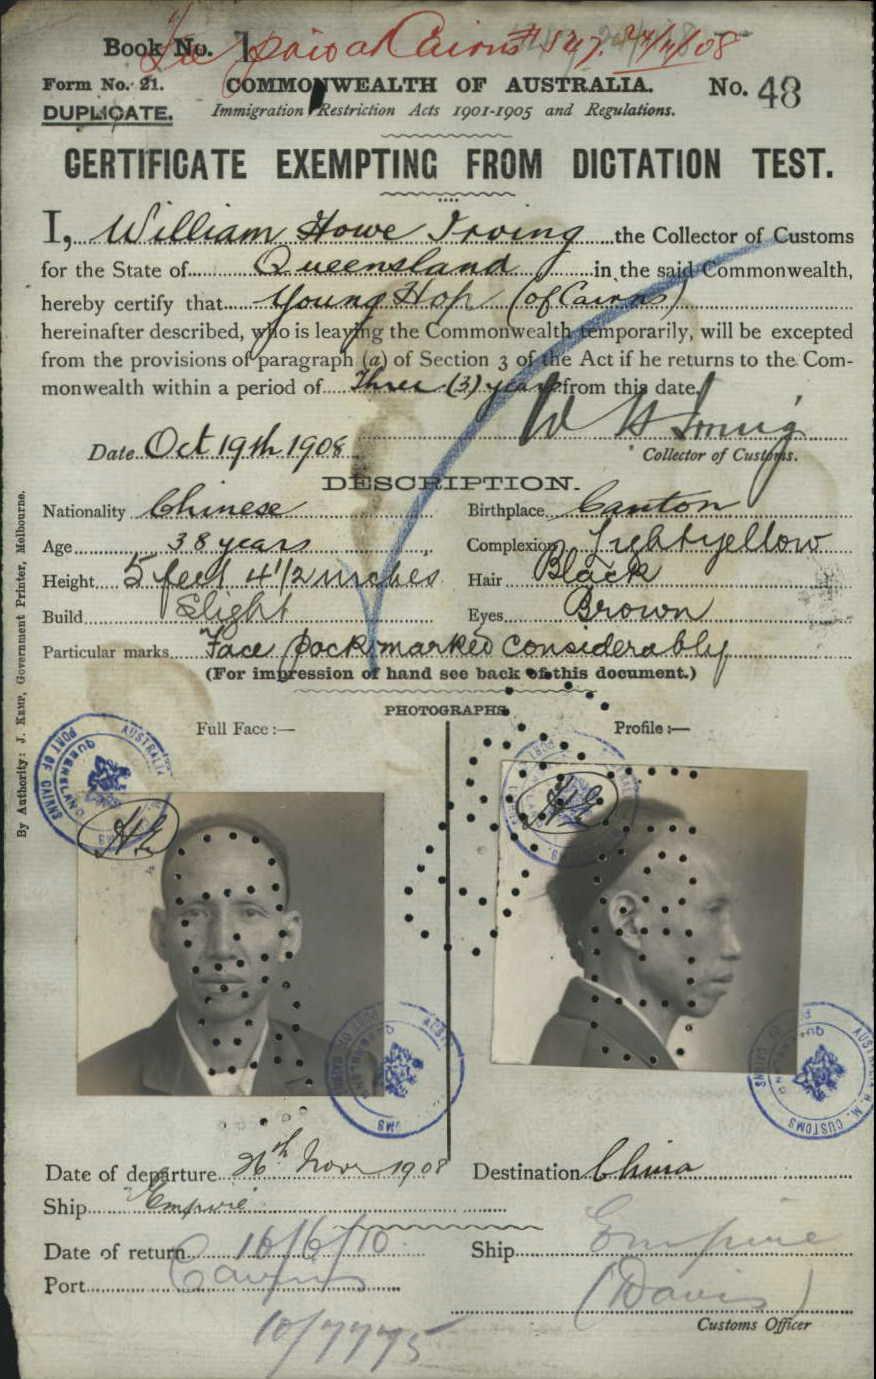 Fee paid at Cairns # 547. 24/11/08
Book No. 1
Form No. 21. COMMONWEALTH OF AUSTRALIA. No. 48
DUPLICATE. Immigration Restriction Acts 1901-1905 and Regulations.
CERTIFICATE EXEMPTING FROM DICTATION TEST.
I, William Howe Irving the Collector of Customs
for the State of Queensland in the said Commonwealth,
hereby certify that Young Hop (of Cairns)
hereinafter described, who is leaving the Commonwealth temporarily, will be excepted
from the provisions of paragraph (a) of Section 3 of the Act if he returns to the Com-
monwealth within a period of Three (3) years from this date.
W H Irving
Date Oct 19th 1908 Collector of Customs.
DESCRIPTION.
Nationality Chinese Birthplace Canton
Age 38 years Complexion Light yellow
Height 5 feet 4 1/2 inches Hair Black
Build Slight Eyes Brown
Particular marks Face pock marked considerably
(For impression of hand see back of this document.)
PHOTOGRAPHS.
Full Face :— Profile :—
By Authority: J. Kemp, Government Printer, Melbourne.
Date of departure 26th Novr 1908 Destination China
Ship "Empire"
Date of return 16/6/10 Ship Empire
Port Cairns (Davis)
Customs Officer
10/7775